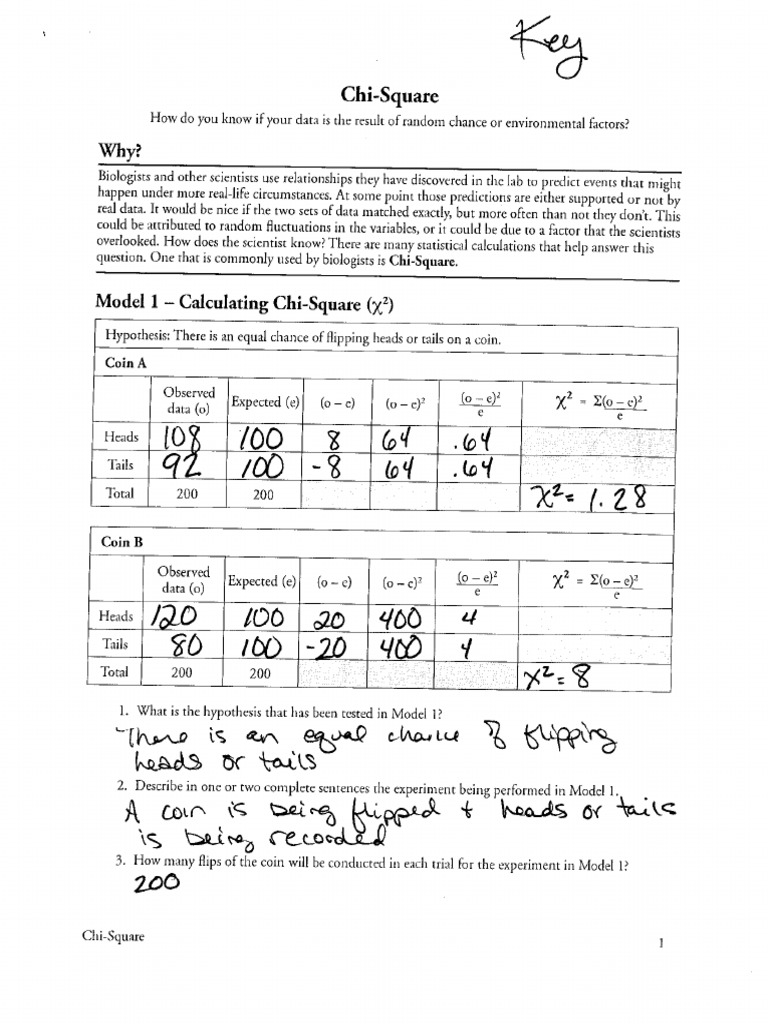 Key
Chi-Square
How do you know if your data is the result of random chance or environmental factors?
Why?
Biologists and other scientists use relationships they have discovered in the lab to predict events that might
happen under more real-life circumstances. At some point those predictions are either supported or not by
real data. It would be nice if the two sets of data matched exactly, but more often than not they don't. This
could be attributed to random fluctuations in the variables, or it could be due to a factor that the scientists
overlooked. How does the scientist know? There are many statistical calculations that help answer this
question. One that is commonly used by biologists is Chi-Square.
Model 1 – Calculating Chi-Square (χ²)
Hypothesis: There is an equal chance of flipping heads or tails on a coin.
Coin A
Observed data (o) Expected (e) (o – e) (o – e)² (o – e)²/e χ² = Σ(o – e)²/e
Heads 108 100 8 64 .64
Tails 92 100 -8 64 .64
Total 200 200 χ²= 1.28
Coin B
Observed data (o) Expected (e) (o – e) (o – e)² (o – e)²/e χ² = Σ(o – e)²/e
Heads 120 100 20 400 4
Tails 80 100 -20 400 4
Total 200 200 χ²= 8
1. What is the hypothesis that has been tested in Model 1?
There is an equal chance of flipping
heads or tails
2. Describe in one or two complete sentences the experiment being performed in Model 1.
A coin is being flipped + heads or tails
is being recorded
3. How many flips of the coin will be conducted in each trial for the experiment in Model 1?
200
Chi-Square
1